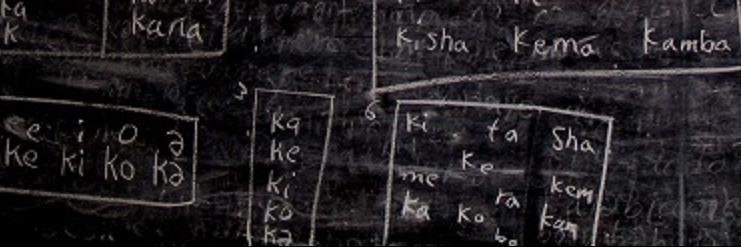 ka
k
kana
kisha kema kamba
e i o ə
ke ki ko kə
3
ka
ke
ki
ko
kə
6
ki ta sha
ke
me ra kem
ka ko kam
ba